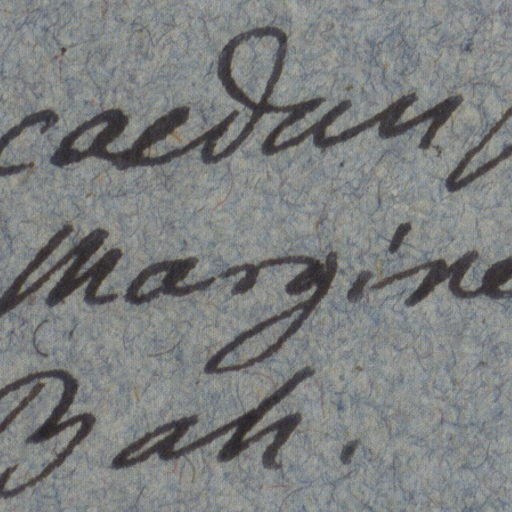 caedun
margine
Bah.